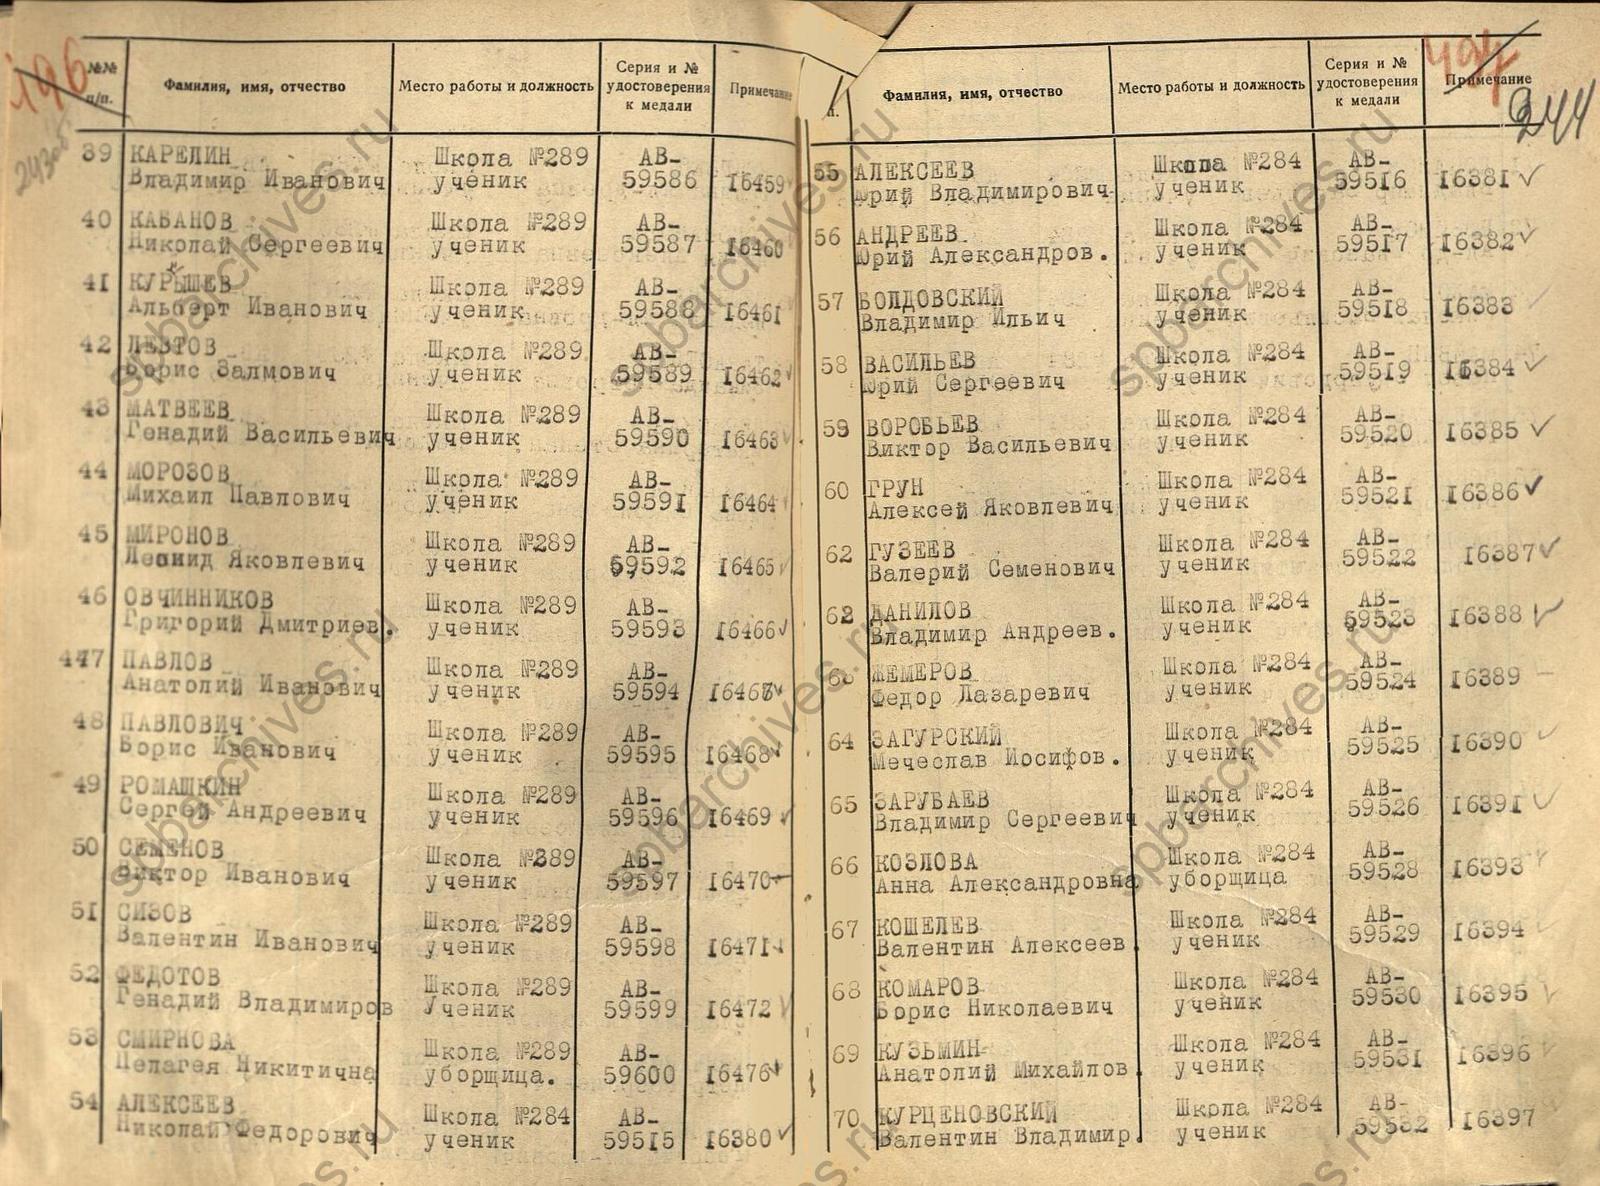 196
№№ п/п.
Фамилия, имя, отчество
Место работы и должность
Серия и № удостоверения к медали
Примечание
39 КАРЕЛИН Школа №289 АВ-
Владимир Иванович ученик 59586 16459
40 КАБАНОВ Школа №289 АВ-
Николай Сергеевич ученик 59587 16460
41 КУРЫШЕВ Школа №289 АВ-
Альберт Иванович ученик 59588 16461
42 ЛЕВТОВ Школа №289 АВ-
Борис Залмович ученик 59589 16462
43 МАТВЕЕВ Школа №289 АВ-
Генадий Васильевич ученик 59590 16463
44 МОРОЗОВ Школа №289 АВ-
Михаил Павлович ученик 59591 16464
45 МИРОНОВ Школа №289 АВ-
Леонид Яковлевич ученик 59592 16465
46 ОВЧИННИКОВ Школа №289 АВ-
Григорий Дмитриев. ученик 59593 16466
447 ПАВЛОВ Школа №289 АВ-
Анатолий Иванович ученик 59594 16467
48 ПАВЛОВИЧ Школа №289 АВ-
Борис Иванович ученик 59595 16468
49 РОМАШКИН Школа №289 АВ-
Сергей Андреевич ученик 59596 16469
50 СЕМЕНОВ Школа №289 АВ-
Виктор Иванович ученик 59597 16470
51 СИЗОВ Школа №289 АВ-
Валентин Иванович ученик 59598 16471
52 ФЕДОТОВ Школа №289 АВ-
Генадий Владимиров Ученик 59599 16472
53 СМИРНОВА Школа №289 АВ-
Пелагея Никитична уборщица. 59600 16476
54 АЛЕКСЕЕВ Школа №284 АВ-
Николай Федорович ученик 59515 16380
п.
Фамилия, имя, отчество
Место работы и должность
Серия и № удостоверения к медали
Примечание
244
55 АЛЕКСЕЕВ Школа №284 АВ-
Юрий Владимирович ученик 59516 16381
56 АНДРЕЕВ Школа №284 АВ-
Юрий Александров. ученик 59517 16382
57 БОЛДОВСКИЙ Школа №284 АВ-
Владимир Ильич ученик 59518 16383
58 ВАСИЛЬЕВ Школа №284 АВ-
Юрий Сергеевич ученик 59519 16384
59 ВОРОБЬЕВ Школа №284 АВ-
Виктор Васильевич ученик 59520 16385
60 ГРУН Школа №284 АВ-
Алексей Яковлевич ученик 59521 16386
62 ГУЗЕЕВ Школа №284 АВ-
Валерий Семенович ученик 59522 16387
62 ДАНИЛОВ Школа №284 АВ-
Владимир Андреев. ученик 59523 16388
ЖЕМЕРОВ Школа №284 АВ-
Федор Лазаревич ученик 59524 16389
64 ЗАГУРСКИЙ Школа №284 АВ-
Мечеслав Иосифов. ученик 59525 16390
65 ЗАРУБАЕВ Школа №284 АВ-
Владимир Сергеевич ученик 59526 16391
66 КОЗЛОВА Школа №284 АВ-
Анна Александровна уборщица 59528 16393
67 КОШЕЛЕВ Школа №284 АВ-
Валентин Алексеев. ученик 59529 16394
68 КОМАРОВ Школа №284 АВ-
Борис Николаевич ученик 59530 16395
69 КУЗЬМИН Школа №284 АВ-
Анатолий Михайлов. ученик 59531 16396
70 КУРЦЕНОВСКИЙ Школа №284 АВ-
Валентин Владимир. ученик 59532 16397
spbarchives.ru